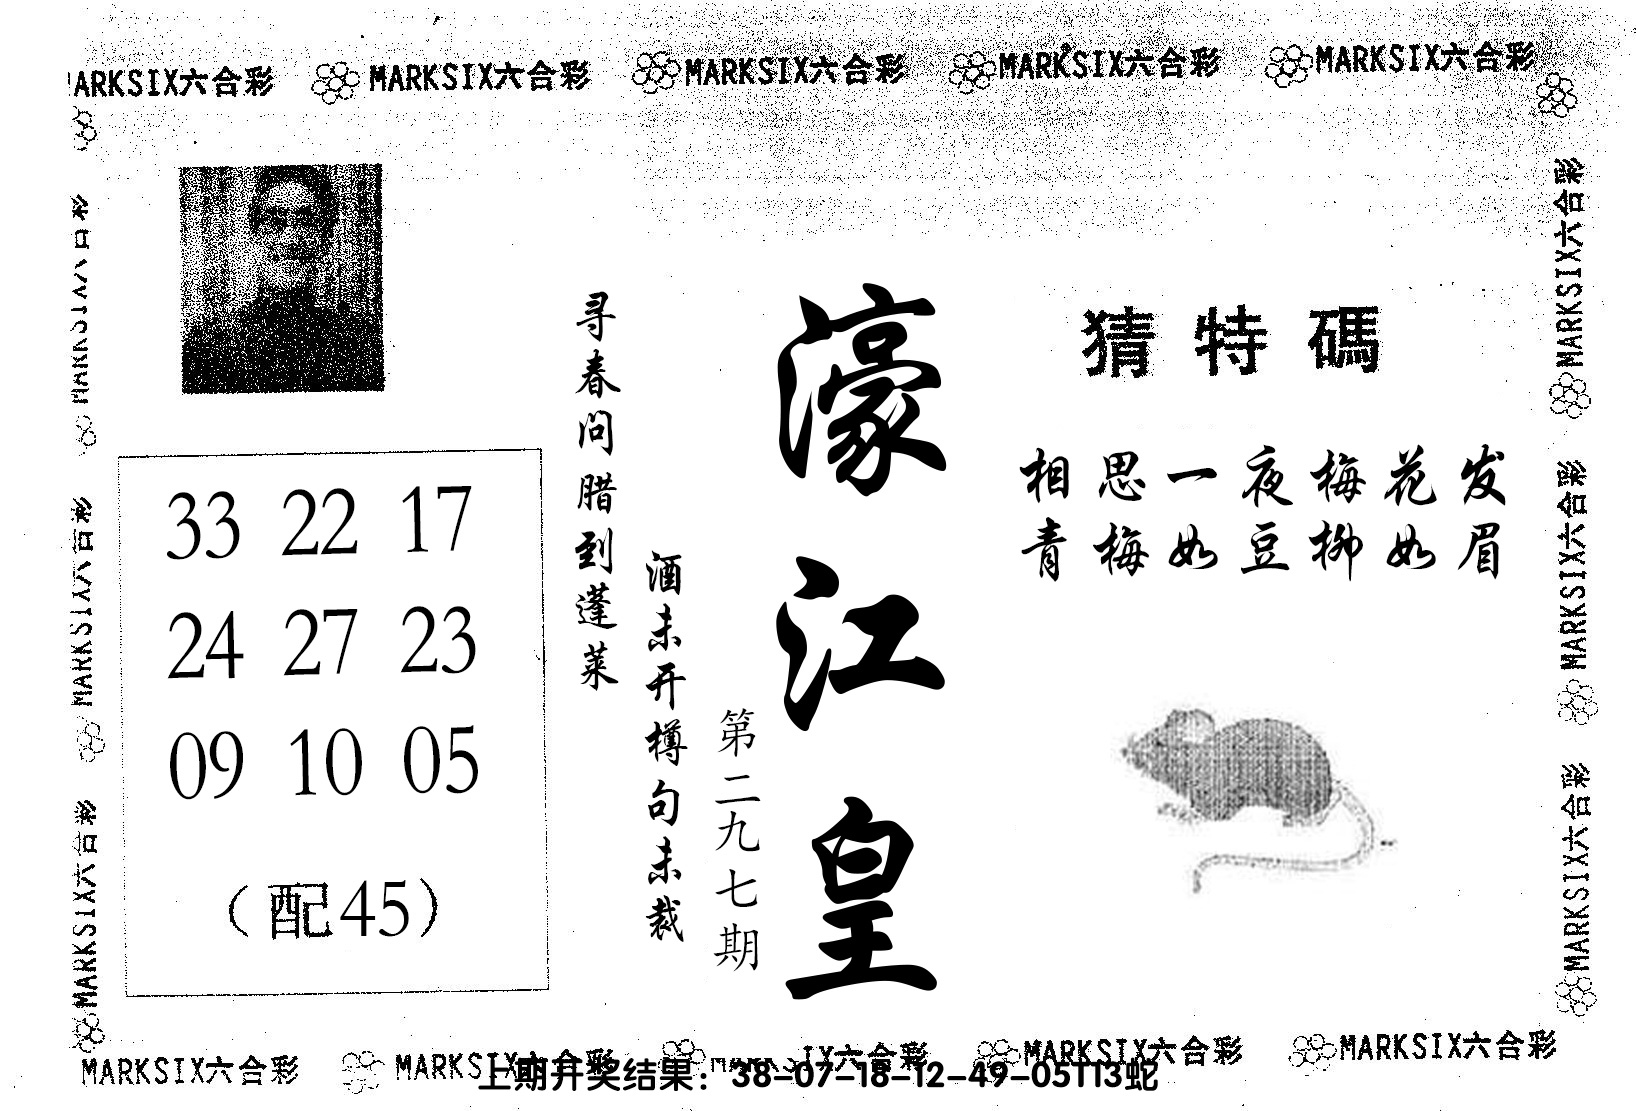 MARKSIX六合彩 MARKSIX六合彩 MARKSIX六合彩 MARKSIX六合彩 MARKSIX六合彩
猜特碼
相思一夜梅花发
青梅如豆柳如眉
濠江皇
第二九七期
酒未开樽句未裁
寻春问腊到蓬莱
33 22 17
24 27 23
09 10 05
（配45）
MARKSIX六合彩
MARKSIX六合彩
MARKSIX六合彩
MARKSIX六合彩
MARKSIX六合彩
MARKSIX六合彩
MARKSIX六合彩 MARKSIX六合彩 MARKSIX六合彩 MARKSIX六合彩 MARKSIX六合彩
上期开奖结果：38-07-18-12-49-05T13蛇